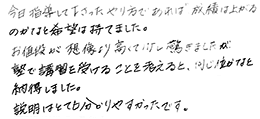 今日指導してもらったやり方であれば成績は上がる
のかなと希望は持てました。
お値段が想像より高くて少し驚きましたが
塾で講習を受けることを考えると、同じ位かなと
納得しました。
説明はとても分かりやすかったです。